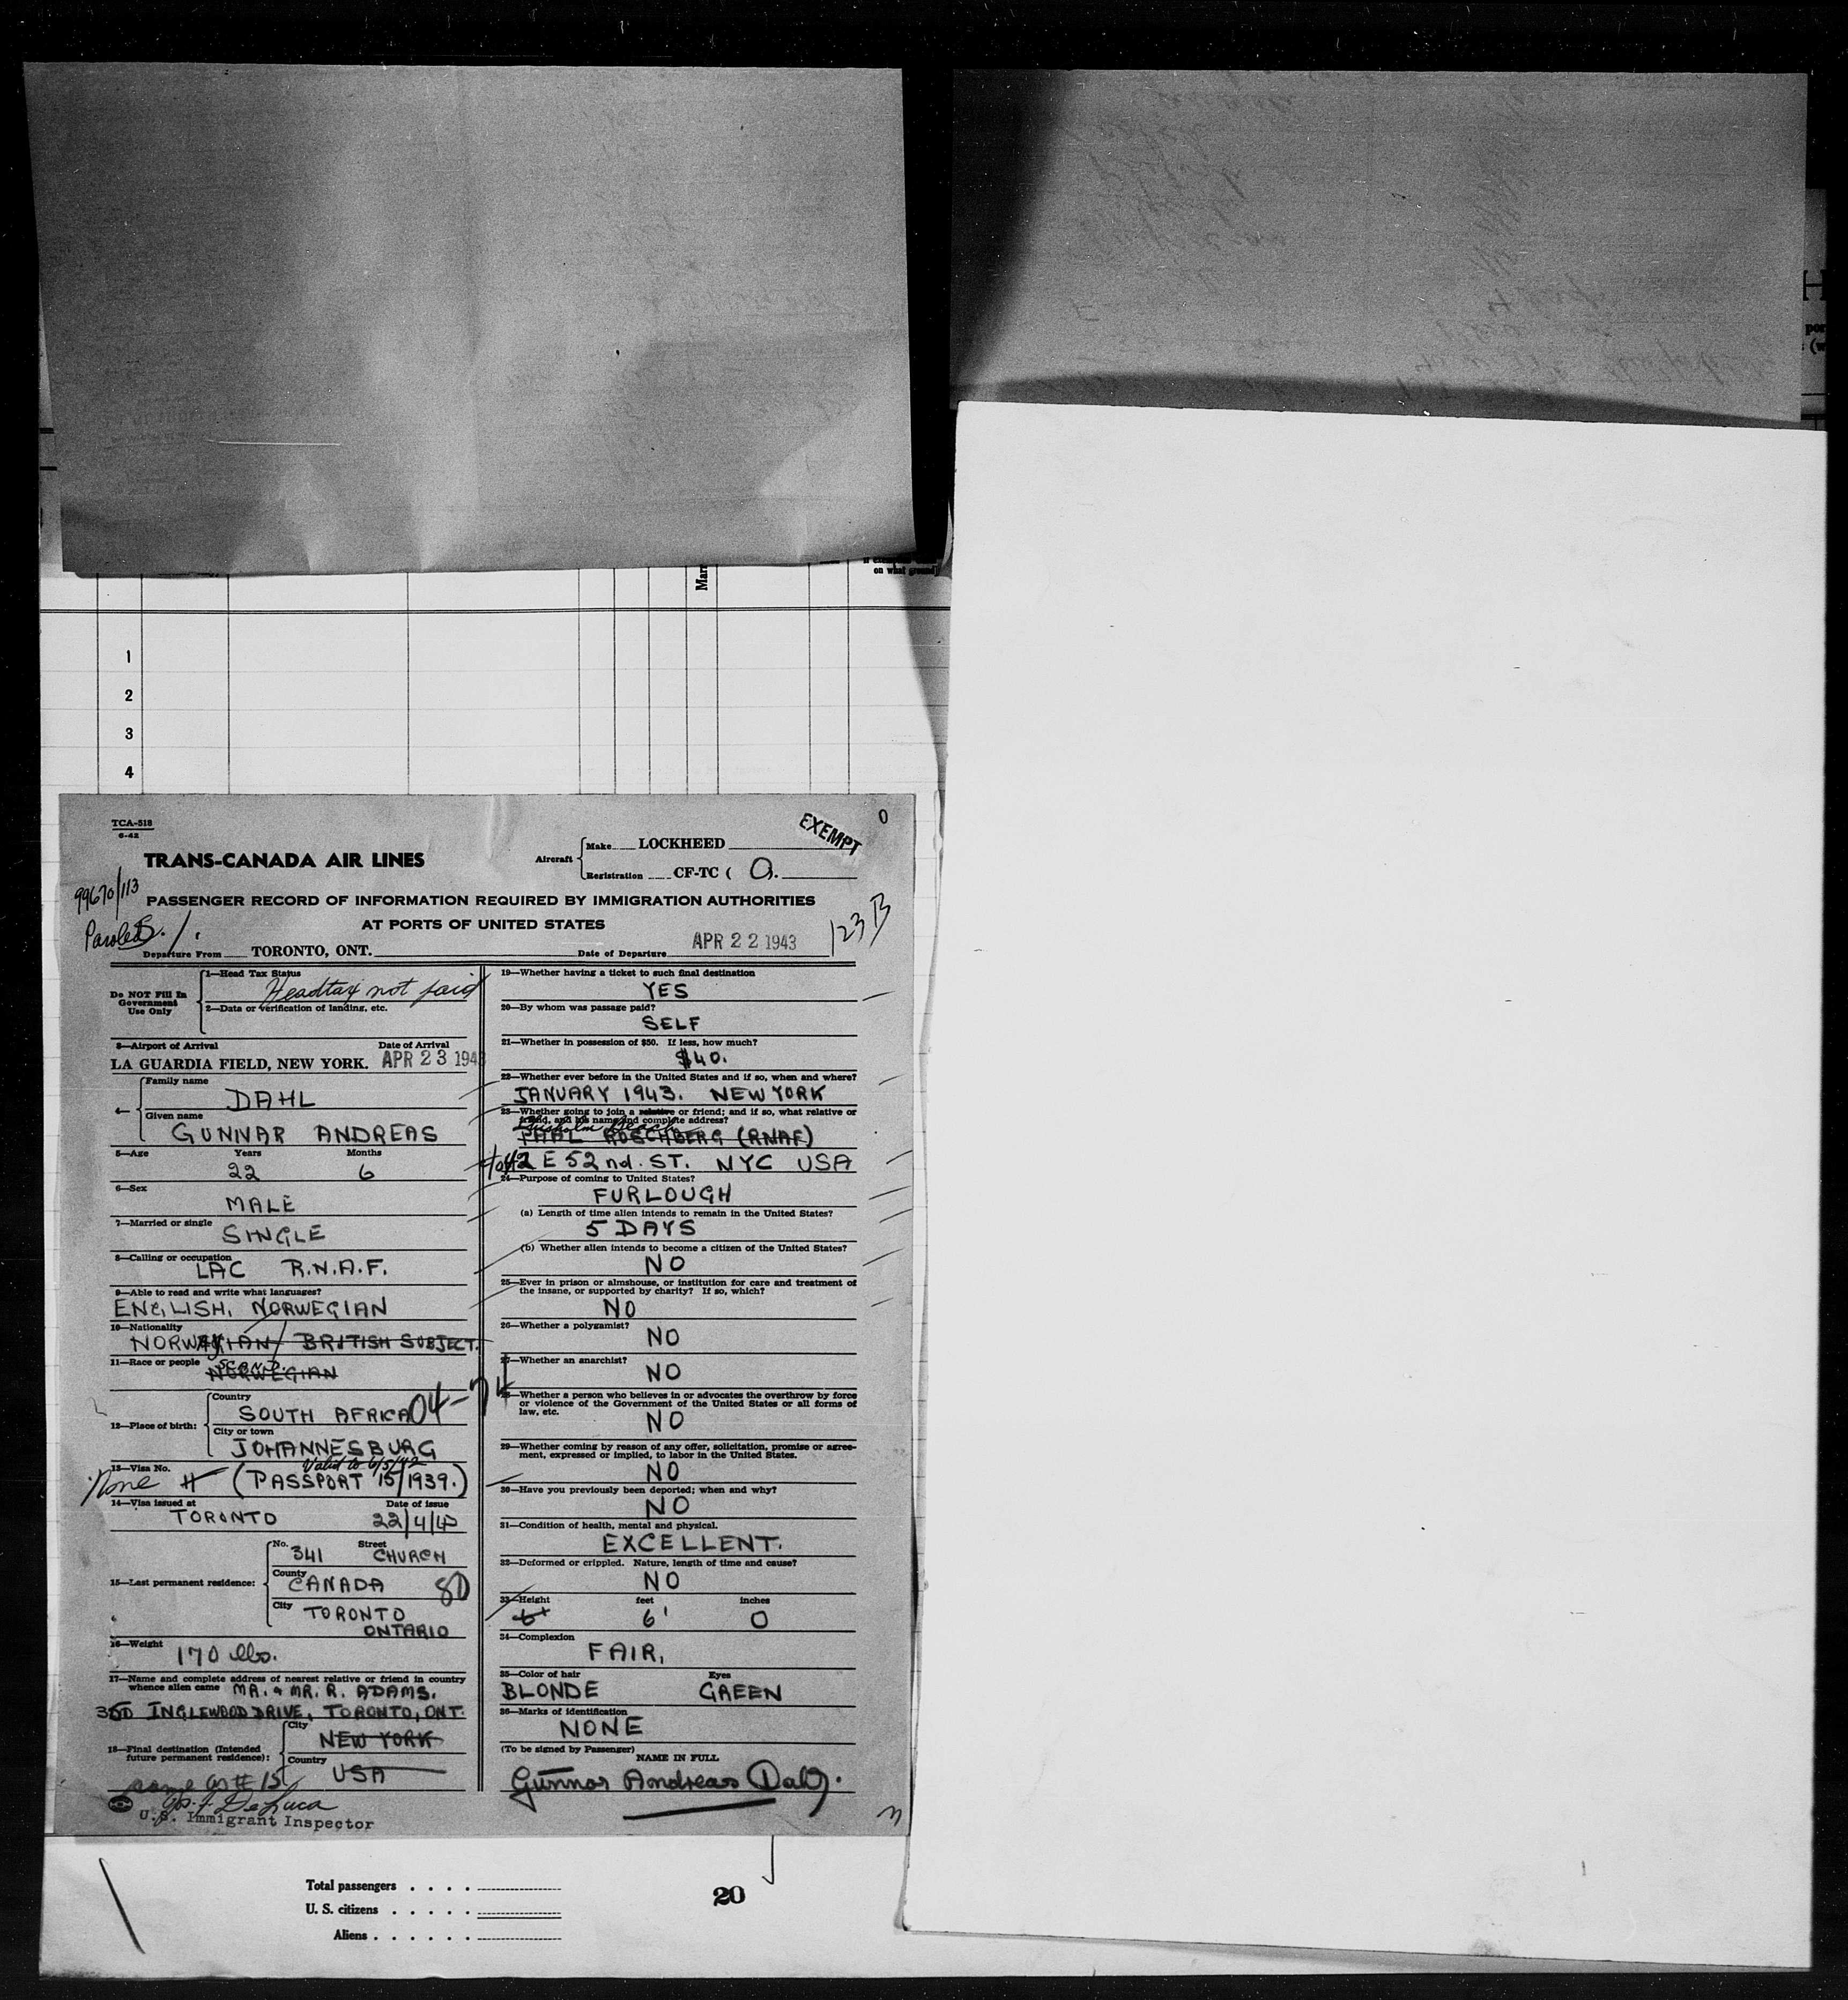 on what ground]
Marr
1
2
3
4
TCA-518
6-42
EXEMPT
0
TRANS-CANADA AIR LINES
Aircraft
Make LOCKHEED
Registration CF-TC ( Q.
99670/113
PASSENGER RECORD OF INFORMATION REQUIRED BY IMMIGRATION AUTHORITIES
AT PORTS OF UNITED STATES
Paroled 123B
Departure From TORONTO, ONT. Date of Departure APR 22 1943
Do NOT Fill In Government Use Only
1—Head Tax Status
Headtax not paid
2—Data or verification of landing, etc.
3—Airport of Arrival Date of Arrival
LA GUARDIA FIELD, NEW YORK. APR 23 1943
4— Family name
DAHL
Given name
GUNNAR ANDREAS
5—Age Years Months
22 6
6—Sex
MALE
7—Married or single
SINGLE
8—Calling or occupation
LAC R.N.A.F.
9—Able to read and write what languages?
ENGLISH, NORWEGIAN
10—Nationality
NORWAY BRITISH SUBJECT.
11—Race or people Scand.
NORWEGIAN
12—Place of birth:
Country
SOUTH AFRICA 04-74
City or town
JOHANNESBURG
13—Visa No. Valid to 6/5/42
None # (PASSPORT 15/1939.)
14—Visa issued at Date of issue
TORONTO 22/4/43
15—Last permanent residence:
No. 341 Street CHURCH
County CANADA 80
City TORONTO
ONTARIO
16—Weight
170 lbs.
17—Name and complete address of nearest relative or friend in country
whence alien came MR. & MR. R. ADAMS.
350 INGLEWOOD DRIVE, TORONTO, ONT.
18—Final destination (Intended future permanent residence):
City
NEW YORK
Country
USA
same as # 15
De Luca
U.S. Immigrant Inspector
19—Whether having a ticket to such final destination
YES
20—By whom was passage paid?
SELF
21—Whether in possession of $50. If less, how much?
$40.
22—Whether ever before in the United States and if so, when and where?
JANUARY 1943. NEW YORK
23—Whether going to join a relative or friend; and if so, what relative or
friend, and his name and complete address?
(RNAF)
42 E 52nd. ST. NYC USA
24—Purpose of coming to United States?
FURLOUGH
(a) Length of time alien intends to remain in the United States?
5 DAYS
(b) Whether alien intends to become a citizen of the United States?
NO
25—Ever in prison or almshouse, or institution for care and treatment of
the insane, or supported by charity? If so, which?
NO
26—Whether a polygamist?
NO
27—Whether an anarchist?
NO
28—Whether a person who believes in or advocates the overthrow by force
or violence of the Government of the United States or all forms of
law, etc.
NO
29—Whether coming by reason of any offer, solicitation, promise or agree-
ment, expressed or implied, to labor in the United States.
NO
30—Have you previously been deported; when and why?
NO
31—Condition of health, mental and physical.
EXCELLENT.
32—Deformed or crippled. Nature, length of time and cause?
NO
33—Height feet inches
6' 6' 0
34—Complexion
FAIR,
35—Color of hair Eyes
BLONDE GREEN
36—Marks of identification
NONE
(To be signed by Passenger)
NAME IN FULL
Gunnar Andreas Dahl.
Total passengers . . . .
U. S. citizens . . . . .
Aliens . . . . . .
20